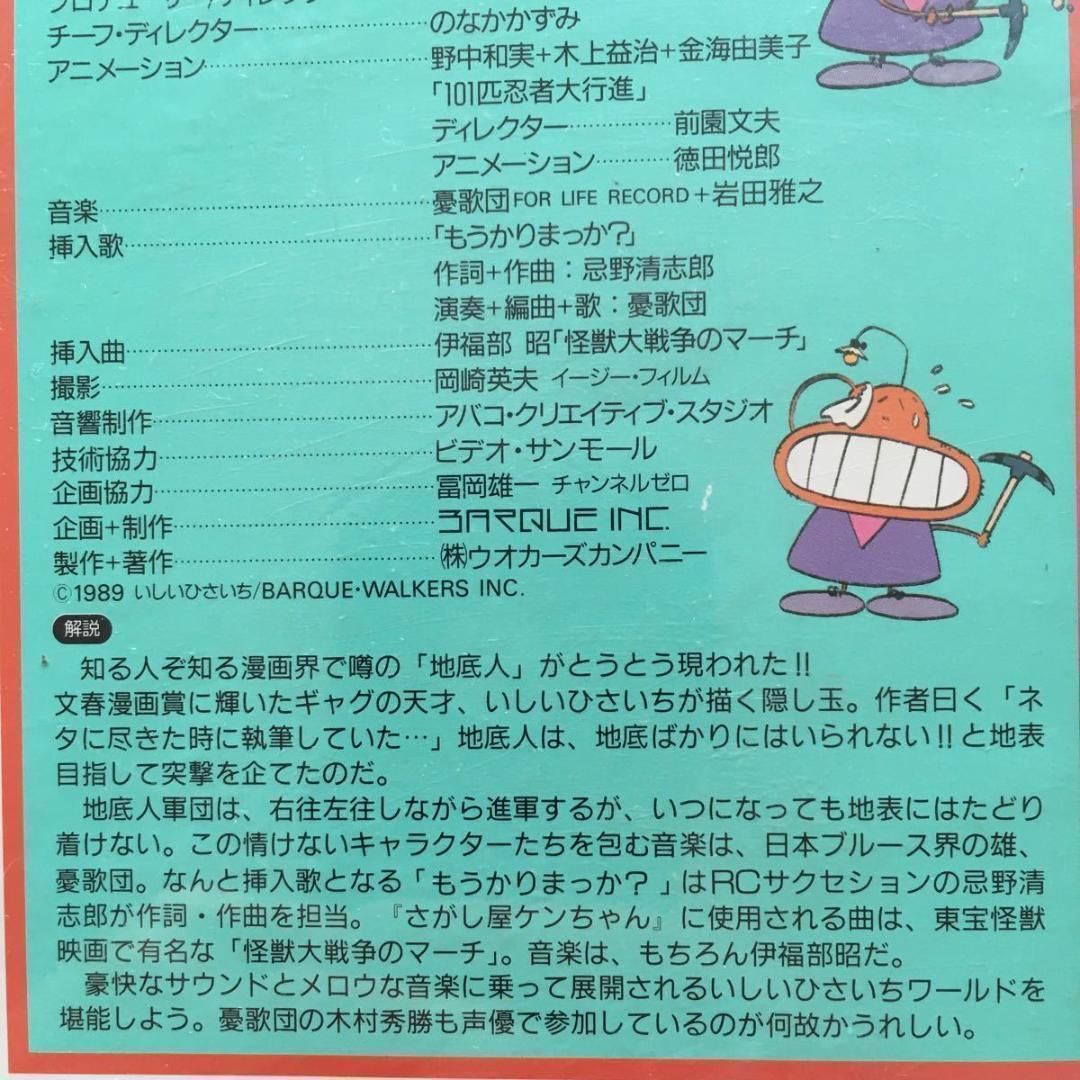 プロデューサー/ディレクター
チーフ・ディレクター……のなかかずみ
アニメーション……野中和実+木上益治+金海由美子
「101匹忍者大行進」
ディレクター……前園文夫
アニメーション……徳田悦郎
音楽……憂歌団FOR LIFE RECORD+岩田雅之
挿入歌……「もうかりまっか?」
作詞+作曲:忌野清志郎
演奏+編曲+歌:憂歌団
挿入曲……伊福部 昭「怪獣大戦争のマーチ」
撮影……岡崎英夫 イージー・フィルム
音響制作……アバコ・クリエイティブ・スタジオ
技術協力……ビデオ・サンモール
企画協力……冨岡雄一 チャンネルゼロ
企画+制作……BARQUE INC.
製作+著作……㈱ウオカーズカンパニー
©1989 いしいひさいち/BARQUE・WALKERS INC.
解説
知る人ぞ知る漫画界で噂の「地底人」がとうとう現われた!!
文春漫画賞に輝いたギャグの天才、いしいひさいちが描く隠し玉。作者曰く「ネ
タに尽きた時に執筆していた…」地底人は、地底ばかりにはいられない!!と地表
目指して突撃を企てたのだ。
地底人軍団は、右往左往しながら進軍するが、いつになっても地表にはたどり
着けない。この情けないキャラクターたちを包む音楽は、日本ブルース界の雄、
憂歌団。なんと挿入歌となる「もうかりまっか?」はRCサクセションの忌野清
志郎が作詞・作曲を担当。『さがし屋ケンちゃん』に使用される曲は、東宝怪獣
映画で有名な「怪獣大戦争のマーチ」。音楽は、もちろん伊福部昭だ。
豪快なサウンドとメロウな音楽に乗って展開されるいしいひさいちワールドを
堪能しよう。憂歌団の木村秀勝も声優で参加しているのが何故かうれしい。